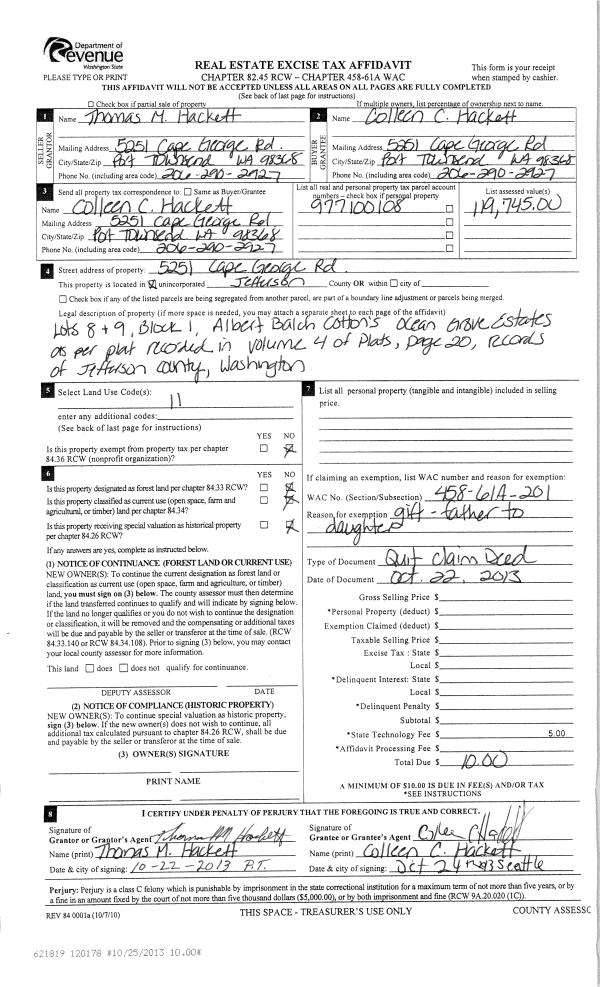 Department of
Revenue
Washington State
PLEASE TYPE OR PRINT
REAL ESTATE EXCISE TAX AFFIDAVIT
CHAPTER 82.45 RCW – CHAPTER 458-61A WAC
This form is your receipt
when stamped by cashier.
THIS AFFIDAVIT WILL NOT BE ACCEPTED UNLESS ALL AREAS ON ALL PAGES ARE FULLY COMPLETED
(See back of last page for instructions)
Check box if partial sale of property
If multiple owners, list percentage of ownership next to name.
1 Name Thomas M. Hackett
SELLER GRANTOR
Mailing Address 5251 Cape George Rd.
City/State/Zip Port Townsend WA 98368
Phone No. (including area code) 206-290-2927
2 Name Colleen C. Hackett
BUYER GRANTEE
Mailing Address 5251 Cape George Rd
City/State/Zip Port Townsend, WA 98368
Phone No. (including area code) 206-290-2927
3 Send all property tax correspondence to: Same as Buyer/Grantee
Name Colleen C. Hackett
Mailing Address 5251 Cape George Rd
City/State/Zip Port Townsend WA 98368
Phone No. (including area code) 206-290-2927
List all real and personal property tax parcel account
numbers – check box if personal property
977100108
List assessed value(s)
119,745.00
4 Street address of property: 5251 Cape George Rd.
This property is located in unincorporated Jefferson County OR within city of
Check box if any of the listed parcels are being segregated from another parcel, are part of a boundary line adjustment or parcels being merged.
Legal description of property (if more space is needed, you may attach a separate sheet to each page of the affidavit)
Lots 8 + 9, Block 1, Albert Balch Cotton's Ocean Grove Estates
as per plat recorded in volume 4 of Plats, page 20, records
of Jefferson county, Washington
5 Select Land Use Code(s):
11
enter any additional codes:
(See back of last page for instructions)
YES NO
Is this property exempt from property tax per chapter
84.36 RCW (nonprofit organization)?
6
YES NO
Is this property designated as forest land per chapter 84.33 RCW?
Is this property classified as current use (open space, farm and
agricultural, or timber) land per chapter 84.34?
Is this property receiving special valuation as historical property
per chapter 84.26 RCW?
If any answers are yes, complete as instructed below.
(1) NOTICE OF CONTINUANCE (FOREST LAND OR CURRENT USE)
NEW OWNER(S): To continue the current designation as forest land or
classification as current use (open space, farm and agriculture, or timber)
land, you must sign on (3) below. The county assessor must then determine
if the land transferred continues to qualify and will indicate by signing below.
If the land no longer qualifies or you do not wish to continue the designation
or classification, it will be removed and the compensating or additional taxes
will be due and payable by the seller or transferor at the time of sale. (RCW
84.33.140 or RCW 84.34.108). Prior to signing (3) below, you may contact
your local county assessor for more information.
This land does does not qualify for continuance.
DEPUTY ASSESSOR DATE
(2) NOTICE OF COMPLIANCE (HISTORIC PROPERTY)
NEW OWNER(S): To continue special valuation as historic property,
sign (3) below. If the new owner(s) does not wish to continue, all
additional tax calculated pursuant to chapter 84.26 RCW, shall be due
and payable by the seller or transferor at the time of sale.
(3) OWNER(S) SIGNATURE
PRINT NAME
7 List all personal property (tangible and intangible) included in selling
price.
If claiming an exemption, list WAC number and reason for exemption:
WAC No. (Section/Subsection) 458-61A-201
Reason for exemption gift - father to
daughter
Type of Document Quit Claim Deed
Date of Document Oct. 22, 2013
Gross Selling Price $
*Personal Property (deduct) $
Exemption Claimed (deduct) $
Taxable Selling Price $
Excise Tax : State $
Local $
*Delinquent Interest: State $
Local $
*Delinquent Penalty $
Subtotal $
*State Technology Fee $ 5.00
*Affidavit Processing Fee $
Total Due $ 10.00
A MINIMUM OF $10.00 IS DUE IN FEE(S) AND/OR TAX
*SEE INSTRUCTIONS
8 I CERTIFY UNDER PENALTY OF PERJURY THAT THE FOREGOING IS TRUE AND CORRECT.
Signature of
Grantor or Grantor's Agent Thomas M Hackett
Name (print) Thomas M. Hackett
Date & city of signing: 10-22-2013 P.T.
Signature of
Grantee or Grantee's Agent
Name (print) Colleen C. Hackett
Date & city of signing: Oct 24 Seattle
Perjury: Perjury is a class C felony which is punishable by imprisonment in the state correctional institution for a maximum term of not more than five years, or by
a fine in an amount fixed by the court of not more than five thousand dollars ($5,000.00), or by both imprisonment and fine (RCW 9A.20.020 (1C)).
REV 84 0001a (10/7/10)
THIS SPACE - TREASURER'S USE ONLY
COUNTY ASSESSC
621819 120178 *10/25/2013 10.00*